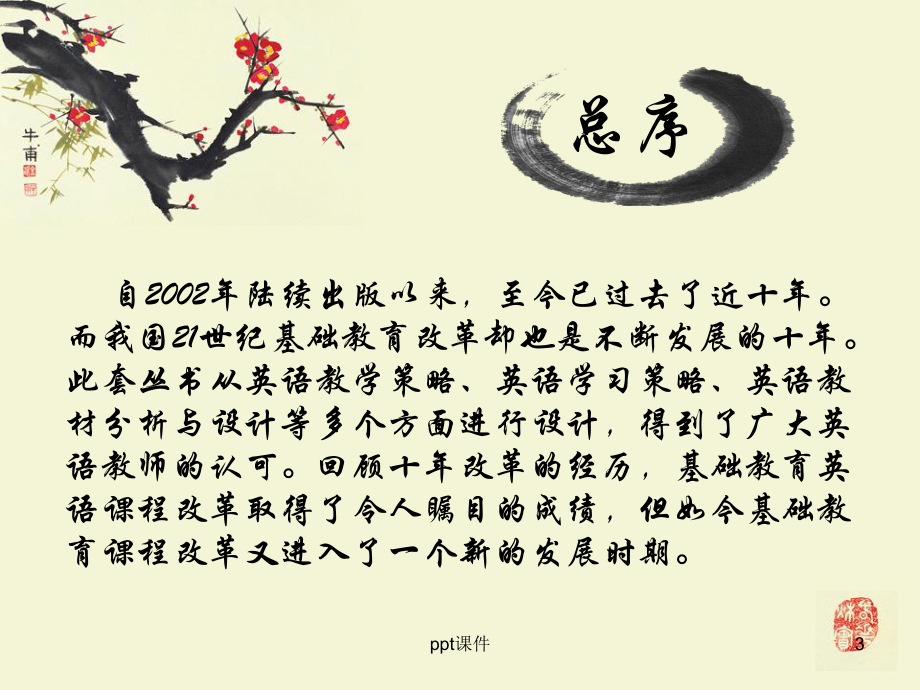 总序
牛甫
自2002年陆续出版以来，至今已过去了近十年。
而我国21世纪基础教育改革却也是不断发展的十年。
此套丛书从英语教学策略、英语学习策略、英语教
材分析与设计等多个方面进行设计，得到了广大英
语教师的认可。回顾十年改革的经历，基础教育英
语课程改革取得了令人瞩目的成绩，但如今基础教
育课程改革又进入了一个新的发展时期。
ppt课件
3